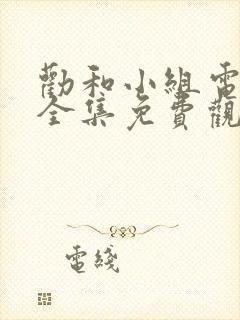 勸和小組電
全集免費觀
電綫